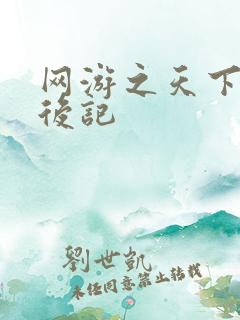 网游之天下
後記
劉世凱
未经同意禁止转载